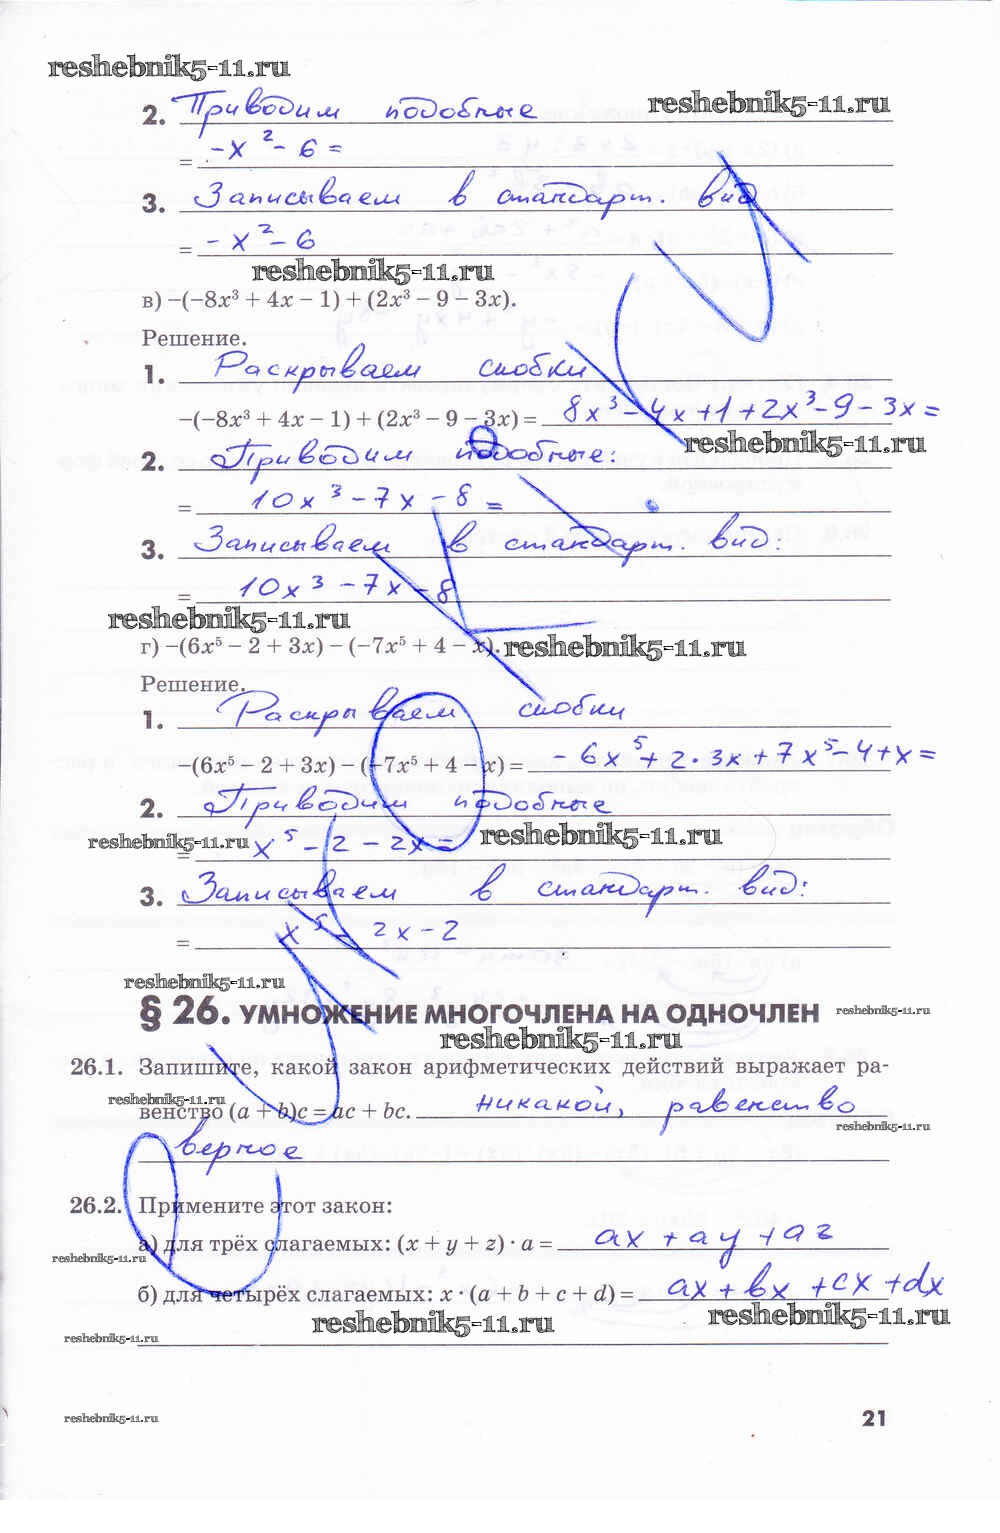 reshebnik5-11.ru
2. Приводим подобные reshebnik5-11.ru
= -x² - 6 =
3. Записываем в стандарт. вид
= - x² - 6
reshebnik5-11.ru
в) –(–8x³ + 4x – 1) + (2x³ – 9 – 3x).
Решение.
1. Раскрываем скобки
–(–8x³ + 4x – 1) + (2x³ – 9 – 3x) = 8x³ - 4x + 1 + 2x³ - 9 - 3x =
reshebnik5-11.ru
2. Приводим подобные:
= 10x³ - 7x - 8 =
3. Записываем в стандарт. вид:
= 10x³ - 7x - 8
reshebnik5-11.ru
г) –(6x⁵ – 2 + 3x) – (–7x⁵ + 4 – x). reshebnik5-11.ru
Решение.
1. Раскрываем скобки
–(6x⁵ – 2 + 3x) – (–7x⁵ + 4 – x) = - 6x⁵ + 2 · 3x + 7x⁵ - 4 + x =
2. Приводим подобные
reshebnik5-11.ru reshebnik5-11.ru
= x⁵ - 2 - 2x =
3. Записываем в стандарт. вид:
= x⁵ - 2x - 2
reshebnik5-11.ru
§ 26. УМНОЖЕНИЕ МНОГОЧЛЕНА НА ОДНОЧЛЕН reshebnik5-11.ru
reshebnik5-11.ru
26.1. Запишите, какой закон арифметических действий выражает ра-
reshebnik5-11.ru
венство (a + b)c = ac + bc. никакой, равенство
reshebnik5-11.ru
верное
26.2. Примените этот закон:
а) для трёх слагаемых: (x + y + z) · a = ax + ay + az
reshebnik5-11.ru
б) для четырёх слагаемых: x · (a + b + c + d) = ax + bx + cx + dx
reshebnik5-11.ru reshebnik5-11.ru
reshebnik5-11.ru
reshebnik5-11.ru 21